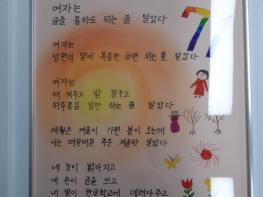 여자는
글을 몰라도 되는 줄 알았다
여자는
남편의 말에 복종만 하면 되는 줄 알았다
여자는
애 키우고 밥 짓고
하루종일 일만 하는 줄 알았다
세월은 겨울이 가면 봄이 오는데
나는 매일매일 추운 겨울만 살았다
내 눈이 밝아지고
내 손이 글을 쓰고
내 발이 한글학교에 데려다 주고